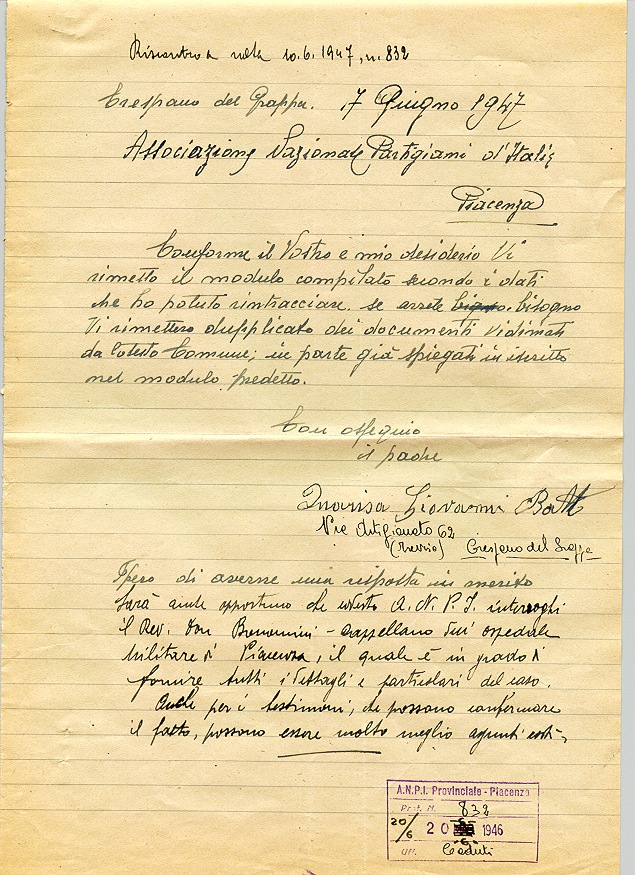 Riscontro a nota 10.6.1947, n. 832
Crespano del Grappa. 17 Giugno 1947
Associazione Nazionale Partigiani d'Italia
Piacenza
Conforme il Vostro e mio desiderio Vi
rimetto il modulo compilato secondo i dati
che ho potuto rintracciare. se avrete bisogno
Vi rimettero dupplicato dei documenti vidimati
da codesto Comune; in parte già spiegati in iscritto
nel modulo predetto.
Con ossequio
il padre
Giovanni Batt
Via Artigianato 62
(Treviso) Crespano del Grappa
Spero di averne una risposta in merito
Sarà anche opportuno che codesto A.N.P.I. interroghi
il Rev. don - Cappellano dell'ospedale
militare di Piacenza, il quale è in grado di
fornire tutti i dettagli e particolari del caso.
Anche per i testimoni, che possono confermare
il fatto, possono essere molto meglio assunti costì,
A.N.P.I. Provinciale - Piacenza
Prot. N. 832
20/6 20 1946
Uff. Caduti